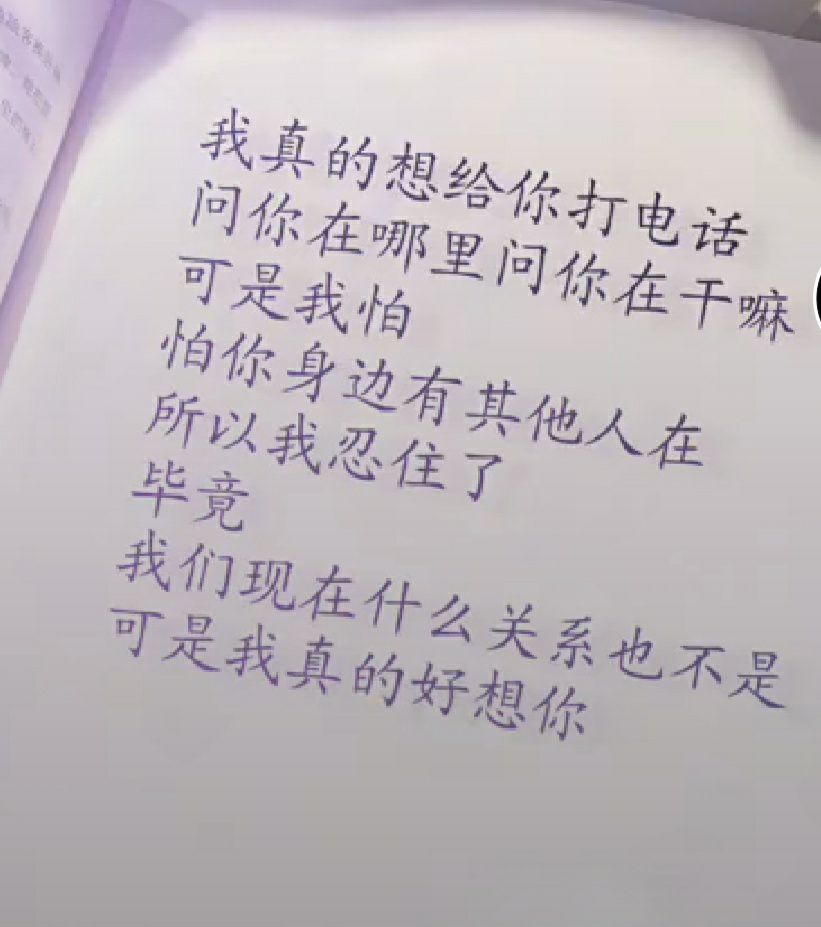 我真的想给你打电话
问你在哪里问你在干嘛
可是我怕
怕你身边有其他人在
所以我忍住了
毕竟
我们现在什么关系也不是
可是我真的好想你